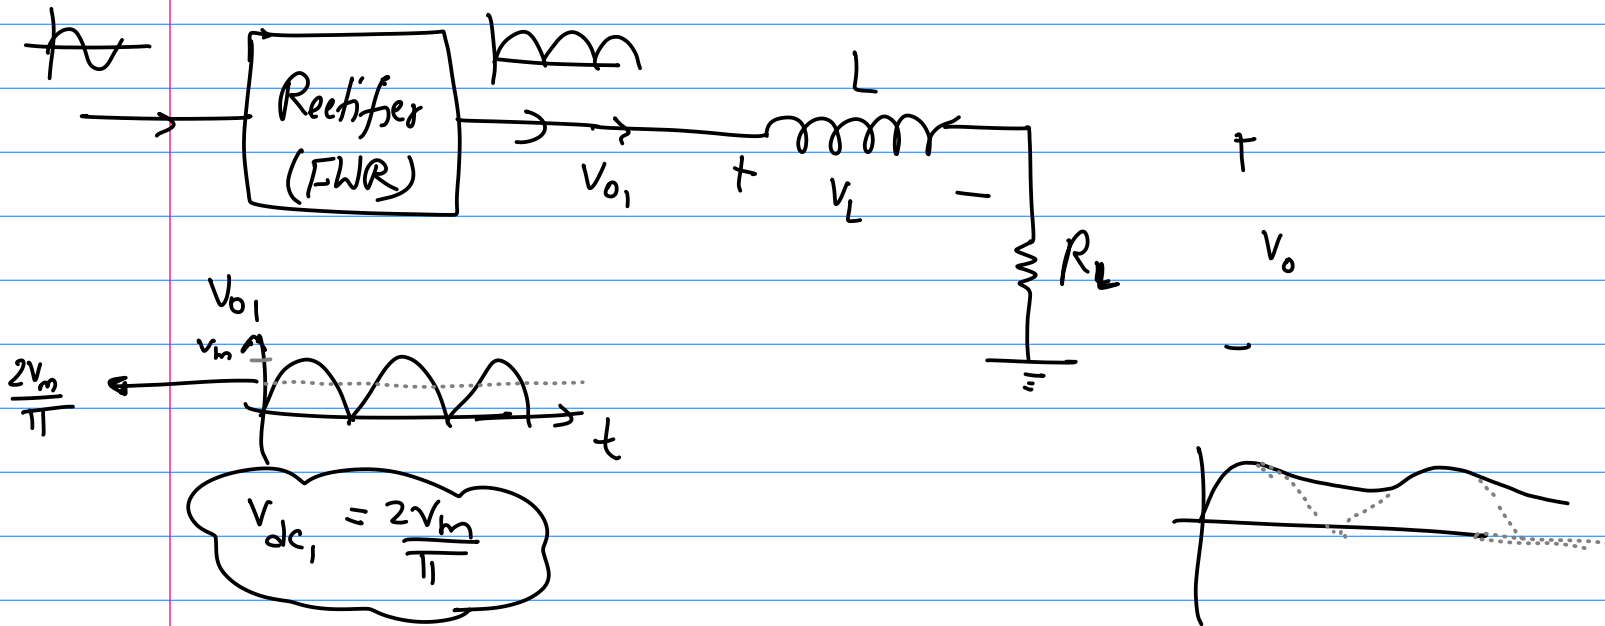 Rectifier
(FWR)
L
V₀₁
+
V_L
−
R_L
+
V₀
−
V₀₁
Vₘ
2Vₘ/π
t
V_dc₁ = 2Vₘ/π